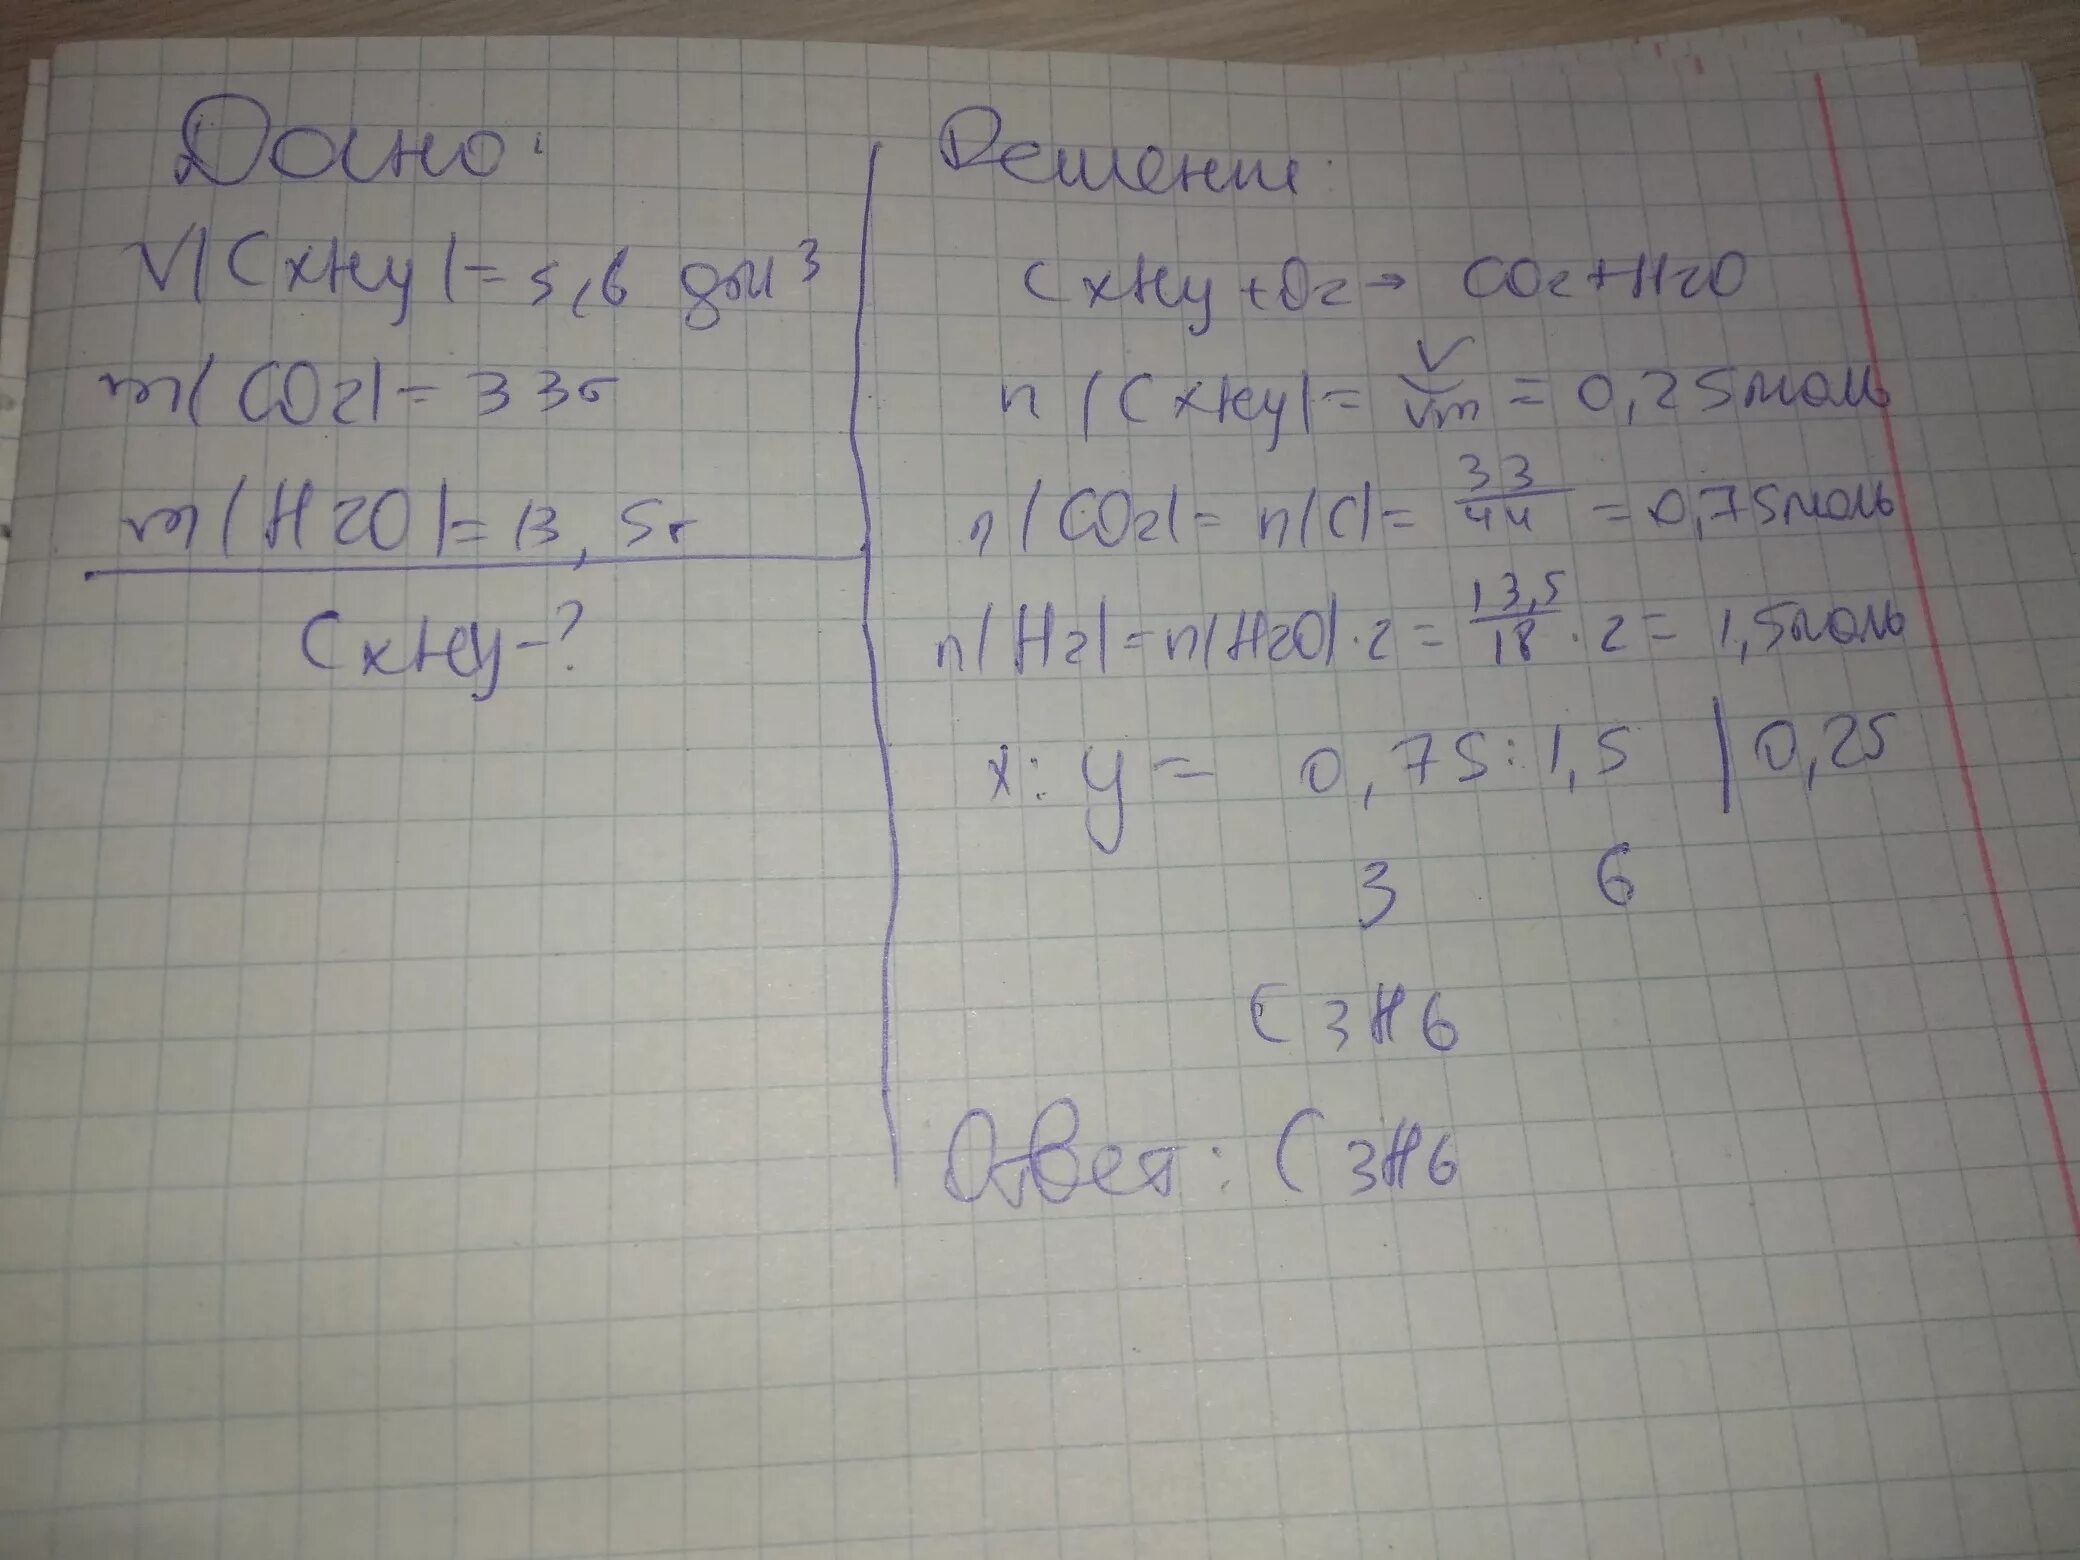 Дано:
V(CxHy)=5,6 дм³
m(CO2)=33г
m(H2O)=13,5г
CxHy-?
Решение:
CxHy+O2→ CO2+H2O
n(CxHy)= V/Vm = 0,25моль
n(CO2)= n(C)= 33/44 =0,75моль
n(H2)=n(H2O)·2= 13,5/18 ·2= 1,5моль
x:y= 0,75:1,5 |0,25
3 6
C3H6
Ответ: C3H6